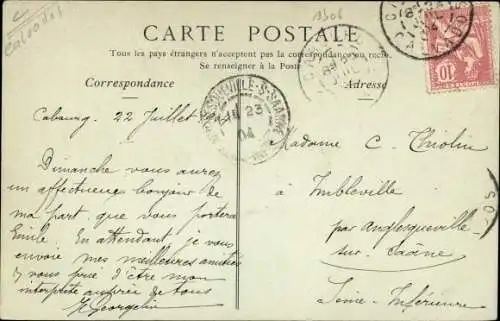 C
Calvados
1306
CARTE POSTALE
Tous les pays étrangers n'acceptent pas la correspondance au recto.
Se renseigner à la Poste
Correspondance
Adresse
Cabourg 22 Juillet
Dimanche vous aurez
un affectueux bonjour de
ma part que vous portera
Emile. En attendant, je vous
envoie mes meilleures amitiés
& vous prie d'être mon
interprète auprès de tous
Georgelin
23
04
10
Madame C. Thiolin
à Imbleville
par Anglesqueville-
sur-Saâne
Seine-Inférieure